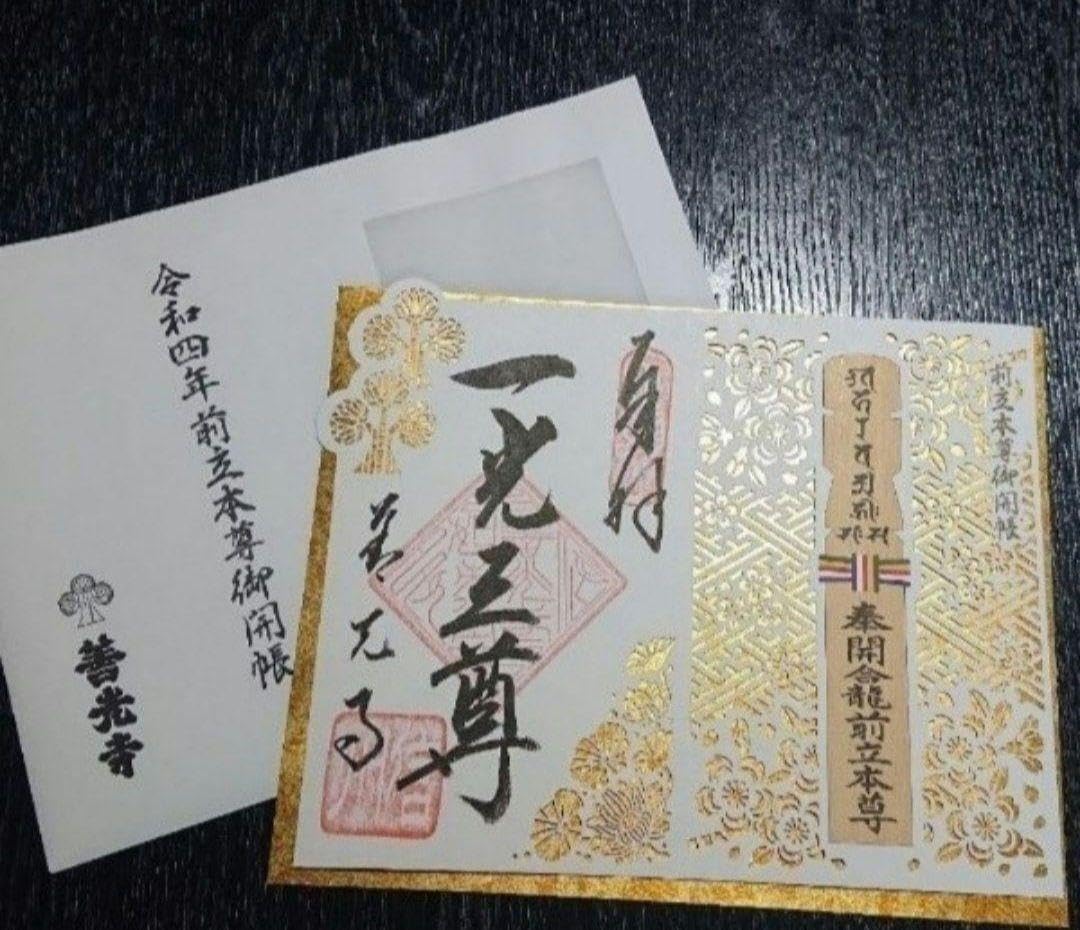 令和四年前立本尊御開帳
善光寺
前立本尊御開帳
奉開合龍前立本尊
奉拝
一光三尊
善光寺